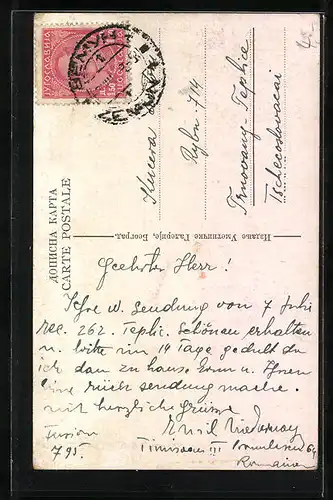 ЈУГОСЛАВИЈА
ДОПИСНА КАРТА
CARTE POSTALE
Издање Уметничке Галерије, Београд.
Kucera
714
Trnovany-Teplice
Tschecoslovacai
Geehrter Herr!
Ihre w. Sendung von 7 Juli
rec. 262. Teplic. Schönau erhalten
u. bitte um 14 Tage geduld da
ich dan zu hause bin u. Ihnen
eine rück sendung mache.
mit herzliche grüsse
Emil
795.
Timisoara III
Romania